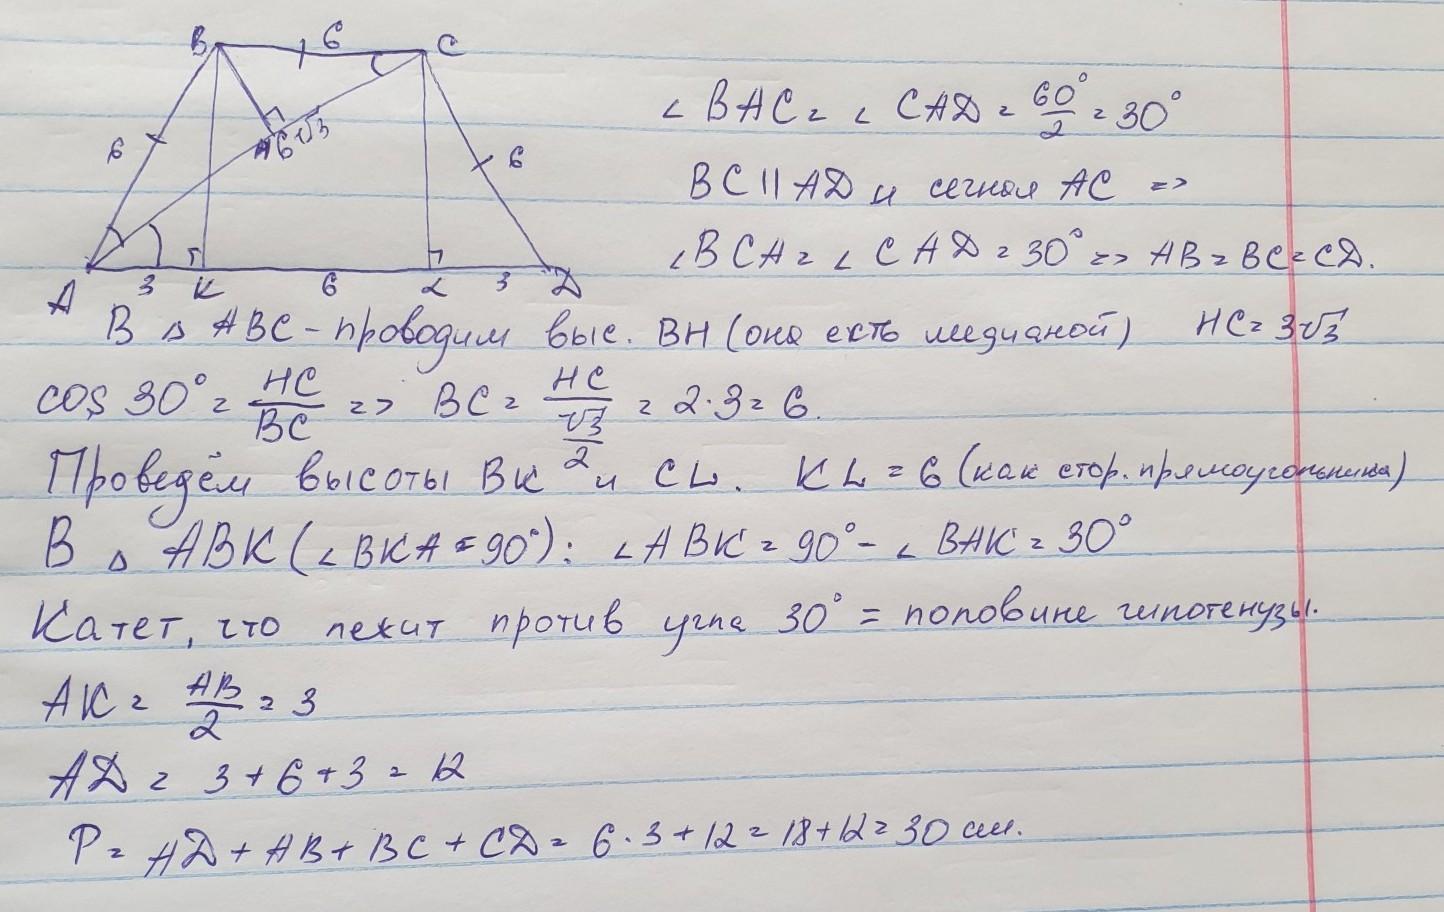 B 6 C
6 H 6√3 6
A 3 K 6 L 3 D
∠ BAC = ∠ CAD = 60°/2 = 30°
BC || AD и секная AC =>
∠BCA = ∠CAD = 30° => AB = BC = CD.
В △ ABC - проводим выс. BH (она есть медианой) HC = 3√3
cos 30° = HC/BC => BC = HC/(√3/2) = 2·3 = 6.
Проведём высоты BK и CL. KL = 6 (как стор. прямоугольника)
В △ ABK (∠BKA = 90°): ∠ABK = 90° - ∠BAK = 30°
Катет, что лежит против угла 30° = половине гипотенузы.
AK = AB/2 = 3
AD = 3 + 6 + 3 = 12
P = AD + AB + BC + CD = 6·3 + 12 = 18 + 12 = 30 см.